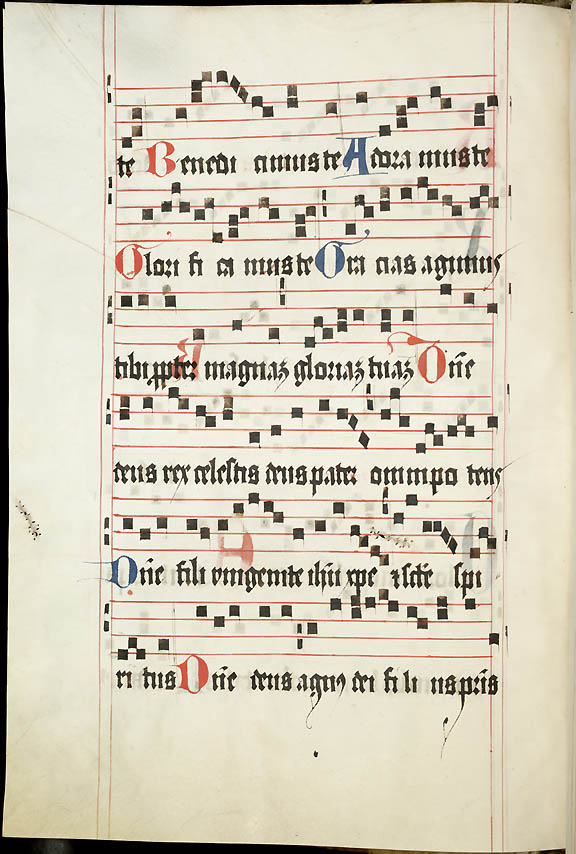 te Benedi cimus te Adora mus te
Glori fi ca mus te Gra cias agimus
tibi ꝓpter magnaꝫ gloriaꝫ tuaꝫ Dn̄e
deus rex celestis deus pater omnipo tens
Dn̄e fili unigenite ihū xpe ⁊ sc̄te spi
ri tus Dn̄e deus agnꝰ dei fi li us pr̄is